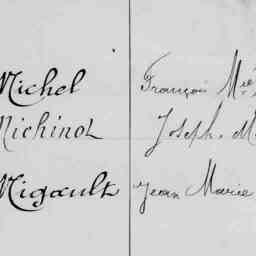 Michel François Mie
Michinot Joseph M
Migault Jean Marie